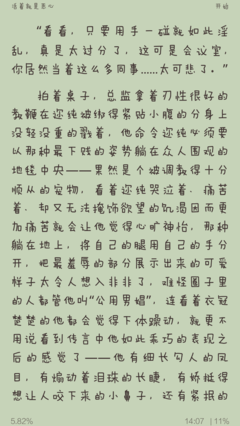 活着就是恶心
开始
“看看，只要用手一碰就如此淫
乱，真是太过分了，这可是会议室，
你居然当着这么多同事……太可悲了。”
拍着桌子，总监拿着刃性很好的
教鞭在迟纯被绑得紧贴小腹的分身上
没轻没重的戳着，他命令迟纯必须要
以那种最下贱的姿势躺在众人围观的
地毯中央——果然是个被调教得十分
顺从的宠物，看着迟纯哭泣着、痛苦
着、却又无法掩饰欲望的饥渴因而更
加痛苦就会让他觉得心旷神怡，那种
躺在地上，将自己的腿用自己的手分
开，把最羞辱的部分展示出来的可爱
样子太令人想入非非了，难怪圈子里
的人都管他叫“公用男娼”，连看着衣冠
楚楚的他都会觉得下体躁动，就更不
用说看到传言中他如此乖巧的表现之
后的感觉了——他有细长勾人的凤
目，有煽动着泪珠的长睫，有娇挺得
想让人咬下来的小鼻子，还有紧抿的
5.82%
14:07
11%